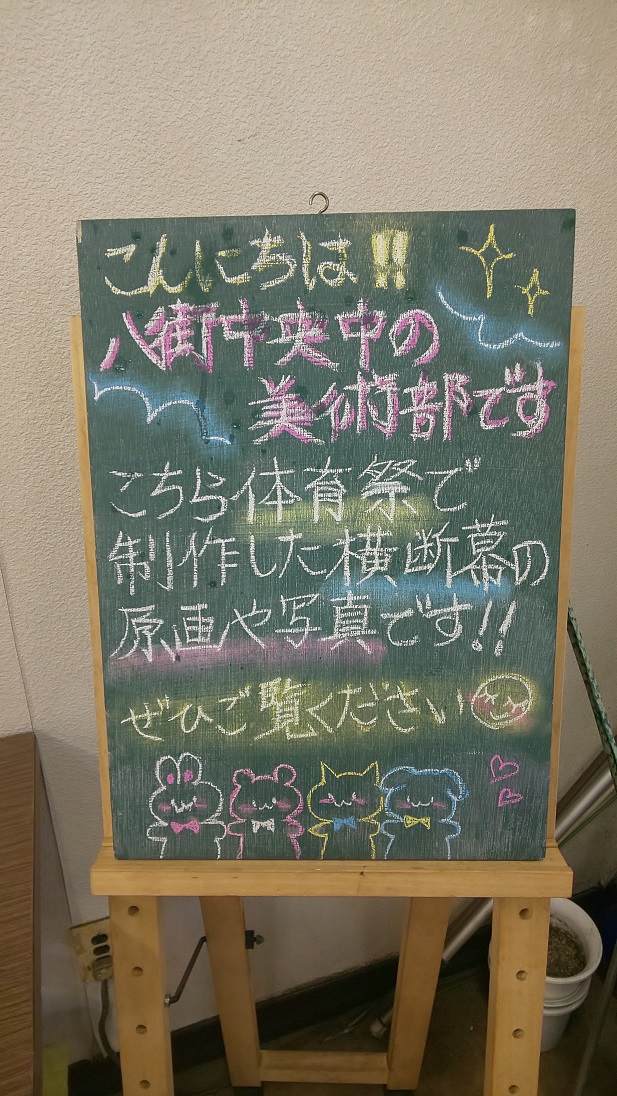 こんにちは!!
八街中央中の
美術部です
こちら体育祭で
制作した横断幕の
原画や写真です!!
ぜひご覧ください